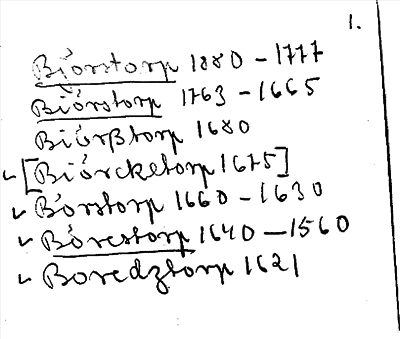 1.
Biörstorp 1880 - 1777
Biörstorp 1763 - 1665
Biörßtorp 1680
[Biörcketorp 1675]
Börstorp 1660 - 1630
Börestorp 1640 - 1560
Boredztorp 1621